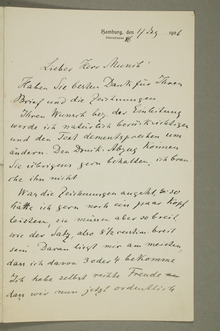 Hamburg, den 11 Dez 1906
Lieber Herr Munch!
Haben Sie besten Dank für Ihren
Brief und die Zeichnungen
Ihren Wunsch bez. der Einleitung
werde ich natürlich berücksichtigen
und den Text dementsprechend um
ändern. Den Druck-Abzug können
Sie übrigens gern behalten, ich brau
che ihn nicht
Was die Zeichnungen angeht, so
hätte ich gern noch ein paar Kopf
leisten, ein so breit
wie der Satz, also 8½ centim breit
sein. Daran liegt mir am meisten
dass ich davon 3 oder 4 bekomme
Ich habe selbst rechte Freude
dass wir nun jetzt ordentlich